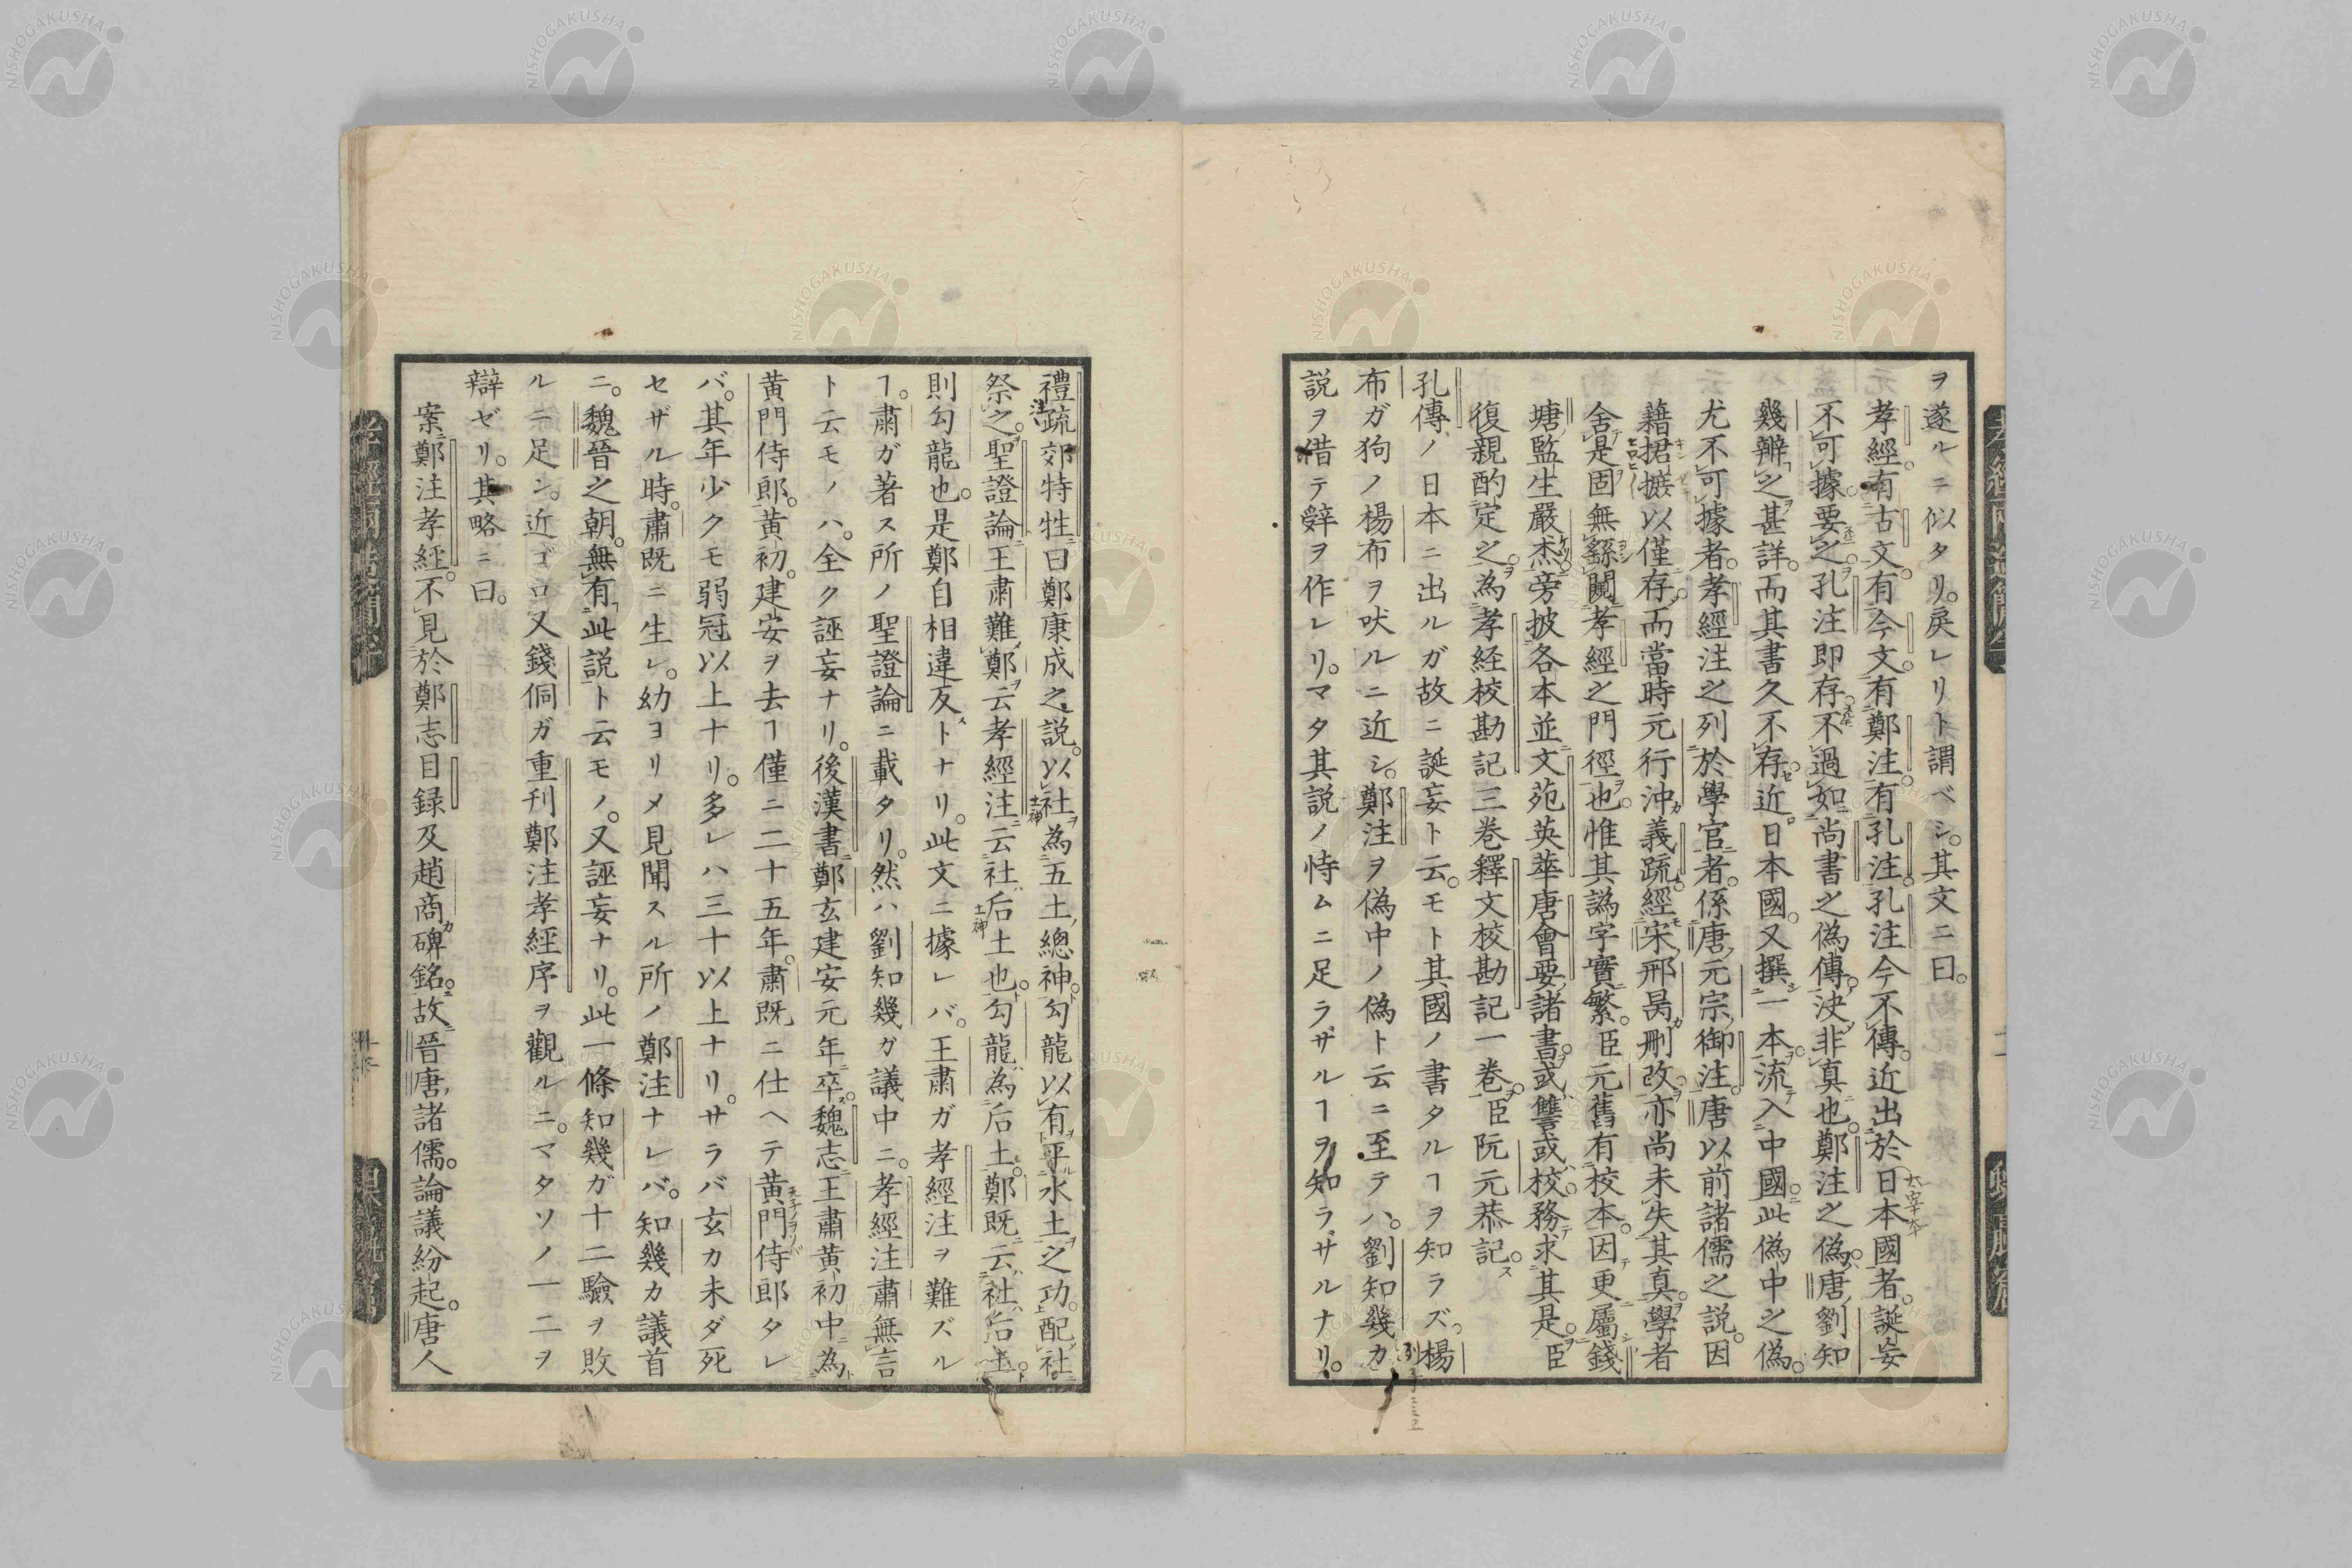 ヲ遂ルニ似タリ。戾レリト謂ベシ。其文ニ曰。
孝經。有古文。有今文。有鄭注。有孔注。孔注今不傳。近出於日本國者。誕妄
不可據。要之孔注即存。不過如尚書之偽傳。決非真也。鄭注之偽。唐劉知
幾辨之甚詳。而其書久不存。近日本國。又撰一本。流入中國。此偽中之偽。
尤不可據者。孝經注之列於學官者。係唐元宗御注。唐以前諸儒之説。因
藉捃摭以僅存。而當時元行沖義疏。經宋邢昺刪改。亦尚未失其真。學者
舍是固無繇闚孝經之門徑也。惟其譌字實繁。臣元舊有校本。因更屬錢
塘監生嚴杰。旁披各本並文苑英華唐會要諸書。或讐或校。務求其是。臣
復親酌定之。為孝経校勘記三巻釋文校勘記一巻。臣阮元恭記。
孔傳ノ日本ニ出ルガ故ニ誕妄ト云。モト其國ノ書タルヿヲ知ラズ。楊
布ガ狗ノ楊布ヲ吠ルニ近シ。鄭注ヲ偽中ノ偽ト云ニ至テハ。劉知幾カ
説ヲ借テ辤ヲ作レリ。マタ其説ノ恃ムニ足ラザルヿヲ知ラザルナリ。
禮疏郊特牲曰鄭康成之説。以社為五土總神。勾龍以有平水土之功。配社
祭之。聖證論王肅難鄭云孝經注云社后土也。勾龍為后土。鄭既云社后土。
則勾龍也。是鄭自相違反トナリ。此文ニ據レバ。王肅ガ孝經注ヲ難ズル
ヿ。肅ガ著ス所ノ聖證論ニ載タリ。然ハ劉知幾ガ議中ニ。孝經注肅無言
ト云モノハ。全ク誣妄ナリ。後漢書鄭玄建安元年卒。魏志王肅黄初中為
黄門侍郎。黄初。建安ヲ去ヿ僅ニ二十五年。肅既ニ仕ヘテ黄門侍郎タレ
バ。其年少クモ弱冠以上ナリ。多レハ三十以上ナリ。サラバ玄カ未ダ死
セザル時。肅既ニ生レ。幼ヨリメ見聞スル所ノ鄭注ナレバ。知幾カ議首
ニ。魏晉之朝。無有此説ト云モノ。又誣妄ナリ。此一條知幾ガ十二驗ヲ敗
ルニ足シ。近ゴロ又錢侗ガ重刊鄭注孝經序ヲ觀ルニ。マタソノ一二ヲ
辯ゼリ。其略ニ曰。
案鄭注孝經。不見於鄭志目録及趙商碑銘。故晉唐諸儒。論議紛起。唐人